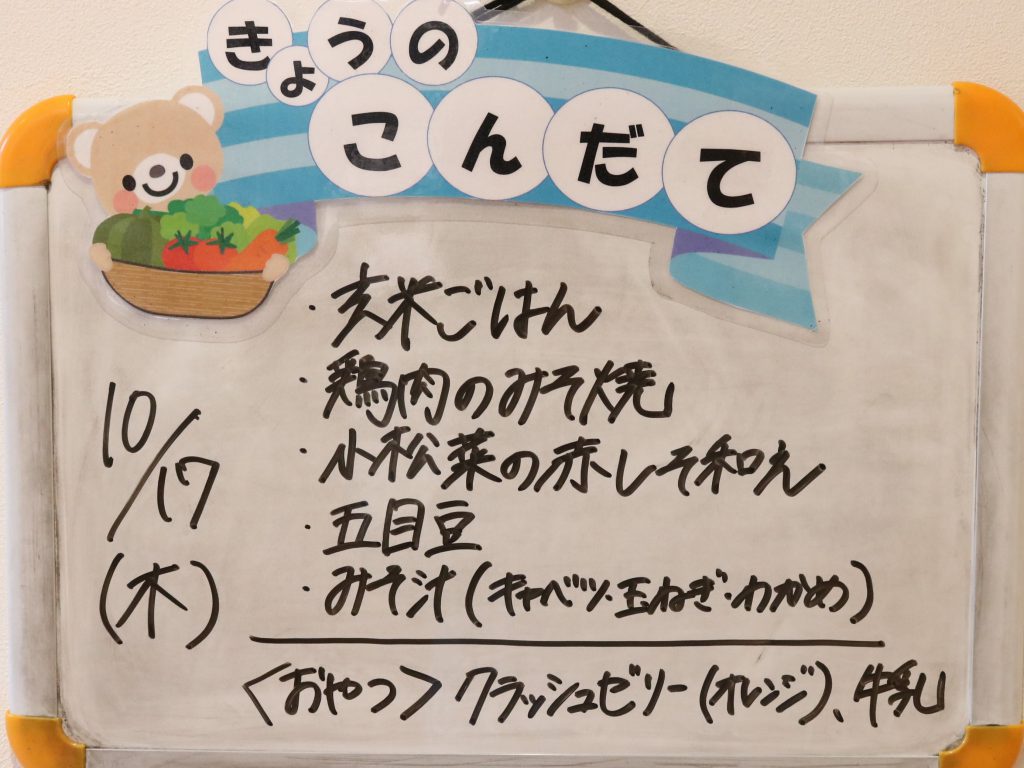 きょうの
こんだて
10/17
(木)
・玄米ごはん
・鶏肉のみそ焼
・小松菜の赤しそ和え
・五目豆
・みそ汁(キャベツ・玉ねぎ・わかめ)
〈おやつ〉クラッシュゼリー(オレンジ)、牛乳